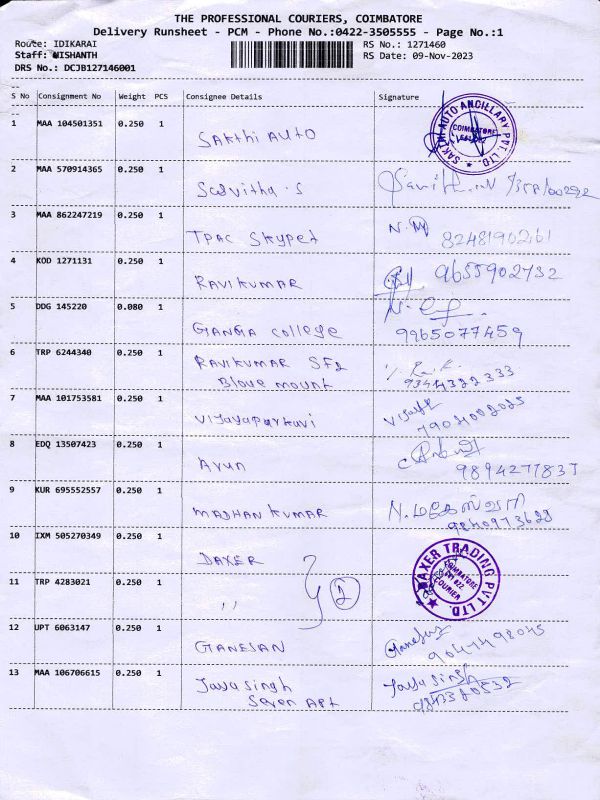 THE PROFESSIONAL COURIERS, COIMBATORE
Delivery Runsheet - PCM - Phone No.:0422-3505555 - Page No.:1
Route: IDIKARAI RS No.: 1271460
Staff: NISHANTH RS Date: 09-Nov-2023
DRS No.: DCJB127146001
S No Consignment No Weight PCS Consignee Details Signature
1 MAA 104501351 0.250 1 SAKthi AUTO SAKTHI AUTO ANCILLARY PVT. LTD. COIMBATORE
2 MAA 570914365 0.250 1
3 MAA 862247219 0.250 1 TPAC N.M 8248190261
4 KOD 1271131 0.250 1 RAVIKUMAR 9655902732
5 DDG 145220 0.080 1 GANGA college 9965077459
6 TRP 6244340 0.250 1 RAVIKUMAR 9344322333
Blove mount
7 MAA 101753581 0.250 1
8 EDQ 13507423 0.250 1 Arun 9894277837
9 KUR 695552557 0.250 1 MADHAN KUMAR N.மகேஸ்வரி
9840973628
10 IXM 505270349 0.250 1 DAXER DAXER TRADING PVT LTD. COIMBATORE COURIER
11 TRP 4283021 0.250 1 ,, 2
12 UPT 6063147 0.250 1 GANESAN
13 MAA 106706615 0.250 1 Jaya Singh Jaya Singh
Seven Apt